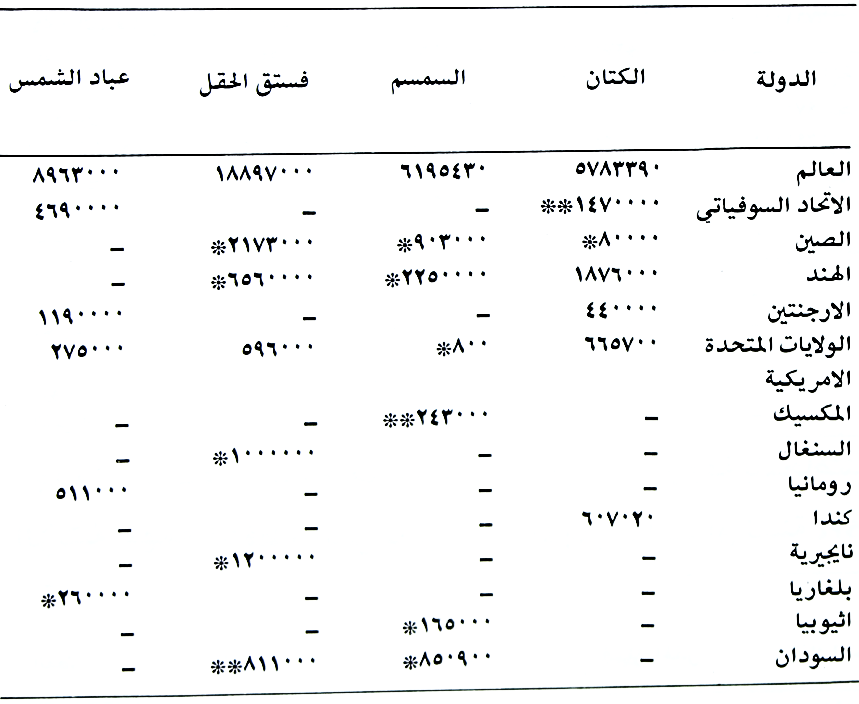 الدولة الكتان السمسم فستق الحقل عباد الشمس
العالم ٥٧٨٣٣٩٠ ٦١٩٥٤٣٠ ١٨٨٩٧٠٠٠ ٨٩٦٣٠٠٠
الاتحاد السوفياتي ١٤٧٠٠٠٠** – – ٤٦٩٠٠٠٠
الصين ٨٠٠٠٠* ٩٠٣٠٠٠* ٢١٧٣٠٠٠* –
الهند ١٨٧٦٠٠٠ ٢٢٥٠٠٠٠* ٦٥٦٠٠٠٠* –
الارجنتين ٤٤٠٠٠٠ – – ١١٩٠٠٠٠
الولايات المتحدة ٦٦٥٧٠٠ ٨٠٠* ٥٩٦٠٠٠ ٢٧٥٠٠٠
الامريكية
المكسيك – ٢٤٣٠٠٠** – –
السنغال – – ١٠٠٠٠٠٠* –
رومانيا – – – ٥١١٠٠٠
كندا ٦٠٧٠٢٠ – – –
نايجيرية – – ١٢٠٠٠٠٠* –
بلغاريا – – – ٢٦٠٠٠٠*
اثيوبيا – ١٦٥٠٠٠* – –
السودان – ٨٥٠٩٠٠* ٨١١٠٠٠** –